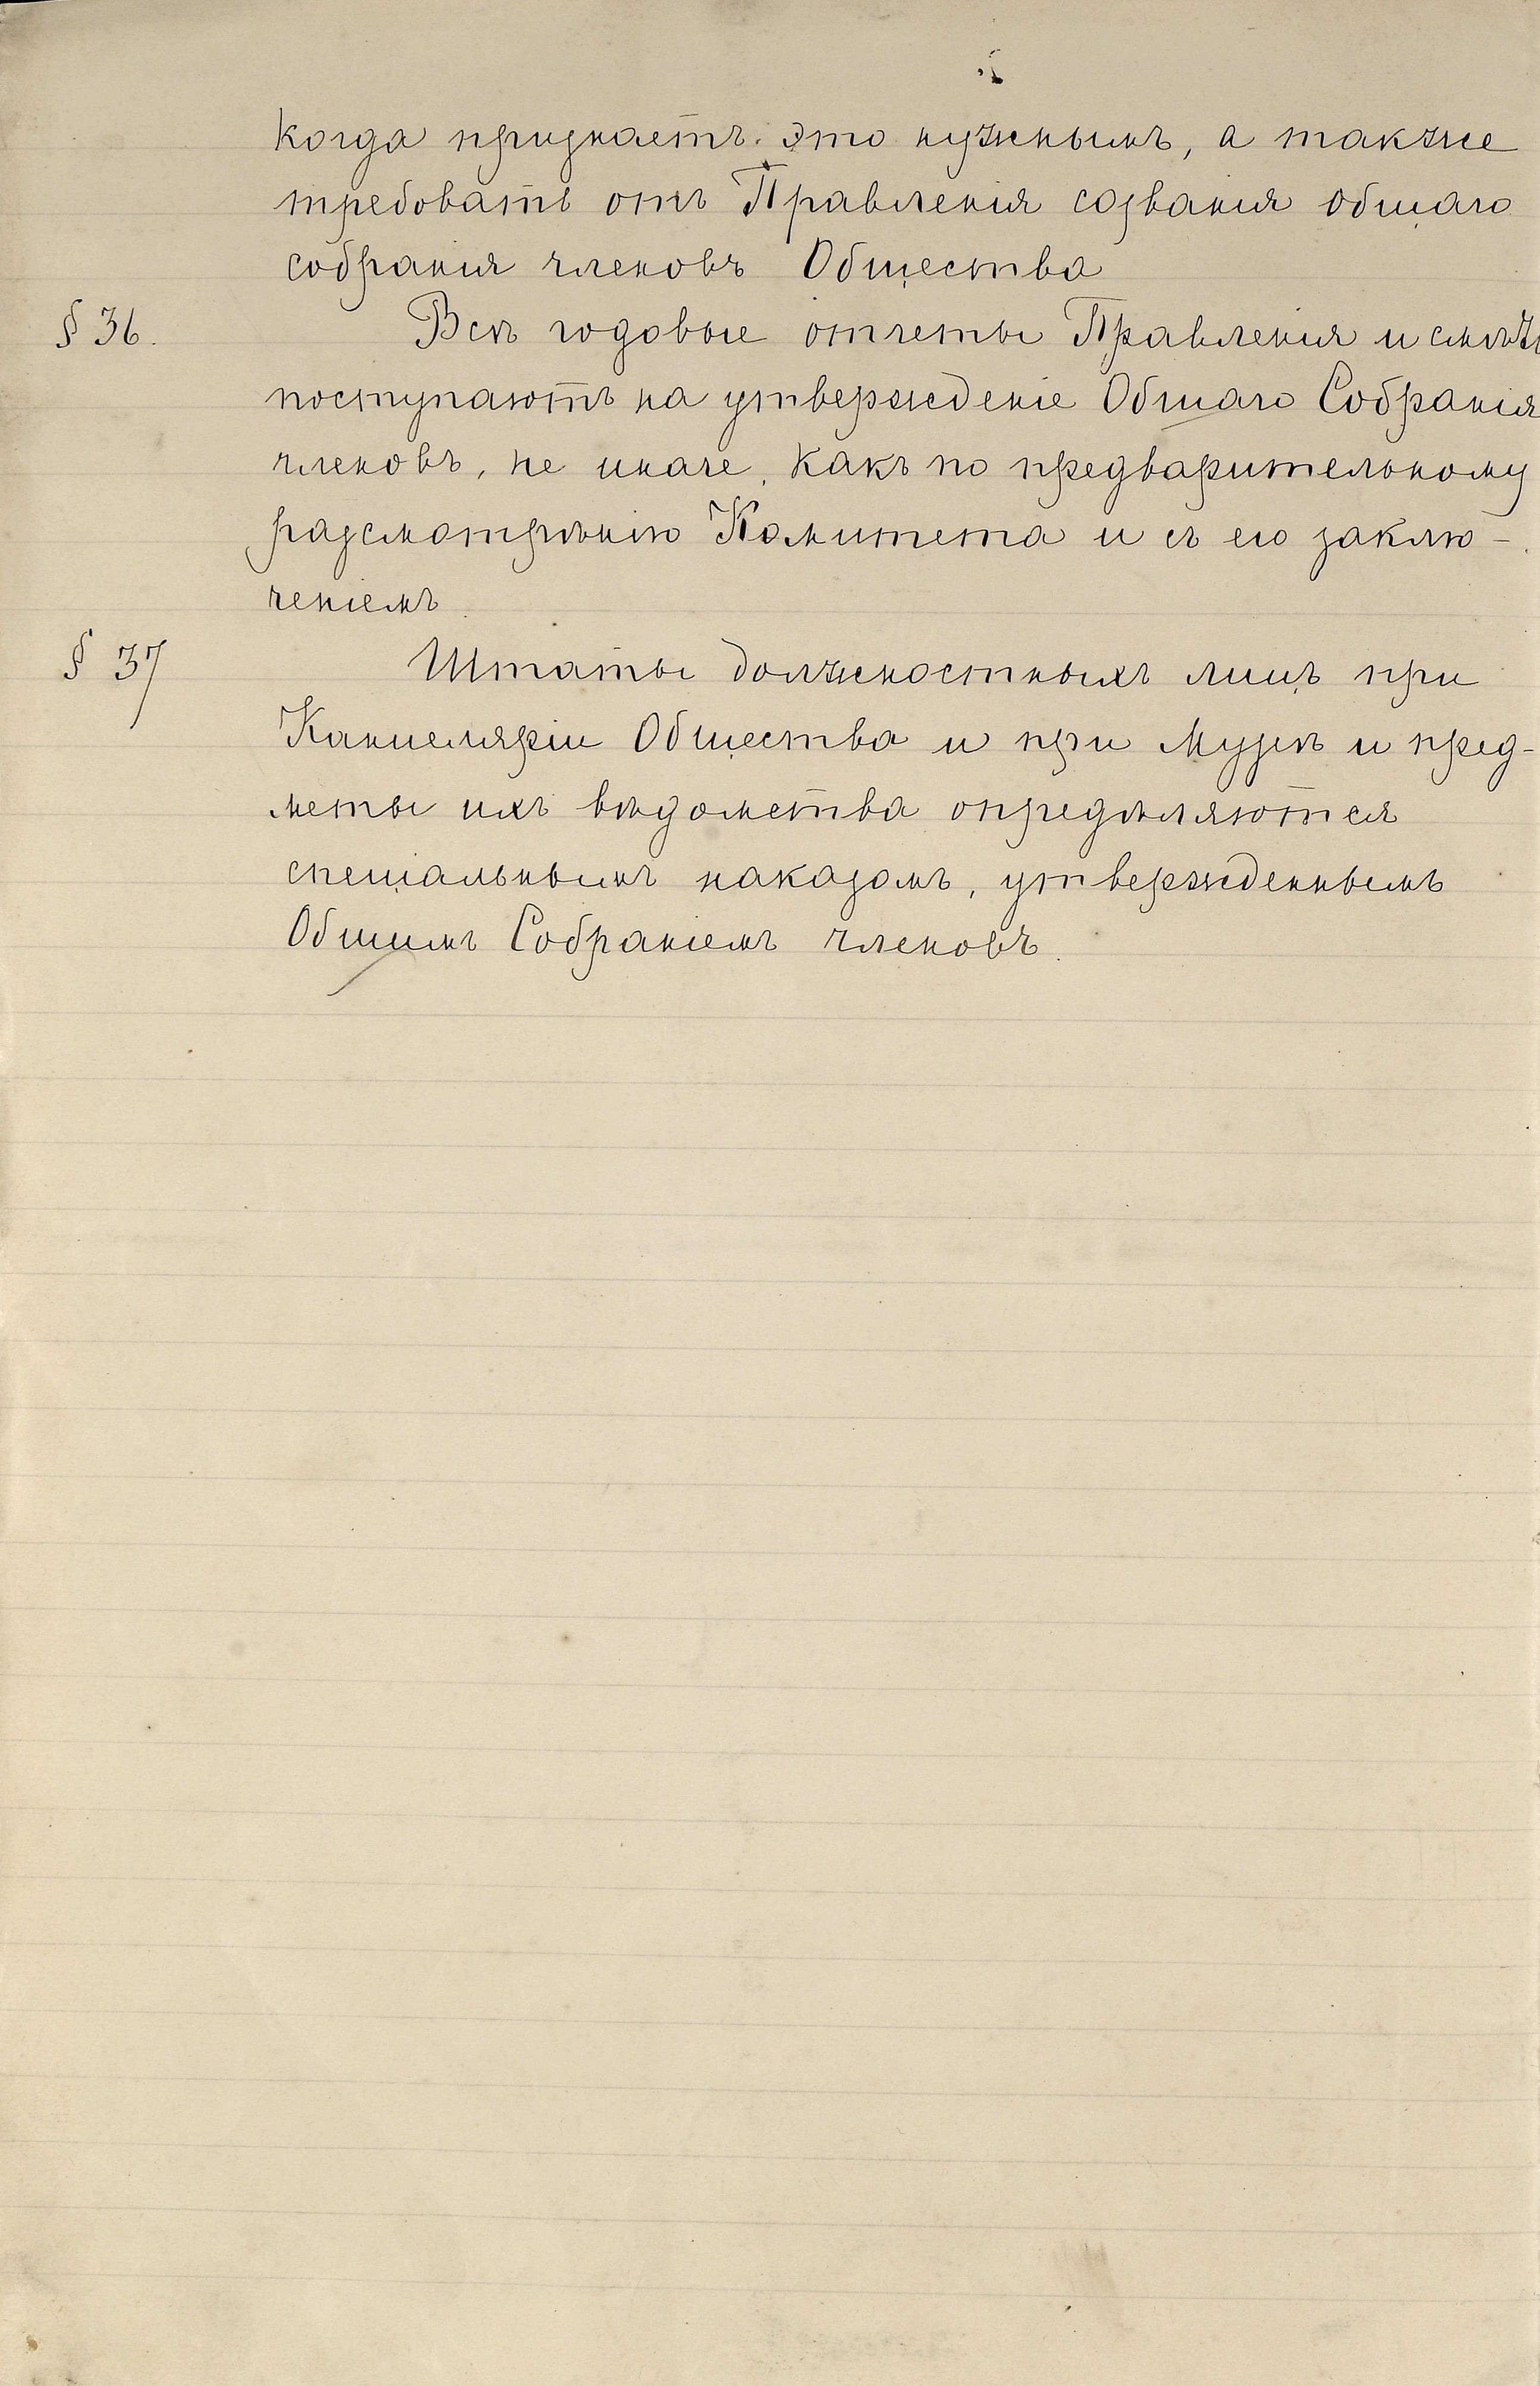 когда признаетъ это нужнымъ, а также
требовать отъ Правленія созванія общаго
собранія членовъ Общества
§ 36. Всѣ годовые отчеты Правленія и смѣты
поступаютъ на утвержденіе Общаго Собранія
членовъ, не иначе, какъ по предварительному
разсмотрѣнію Комитета и съ его заклю-
ченіемъ.
§ 37 Штаты должностныхъ лицъ при
Канцеляріи Общества и при Музеѣ и пред-
меты ихъ вѣдомства опредѣляются
спеціальнымъ наказомъ, утвержденнымъ
Общимъ Собраніемъ членовъ.